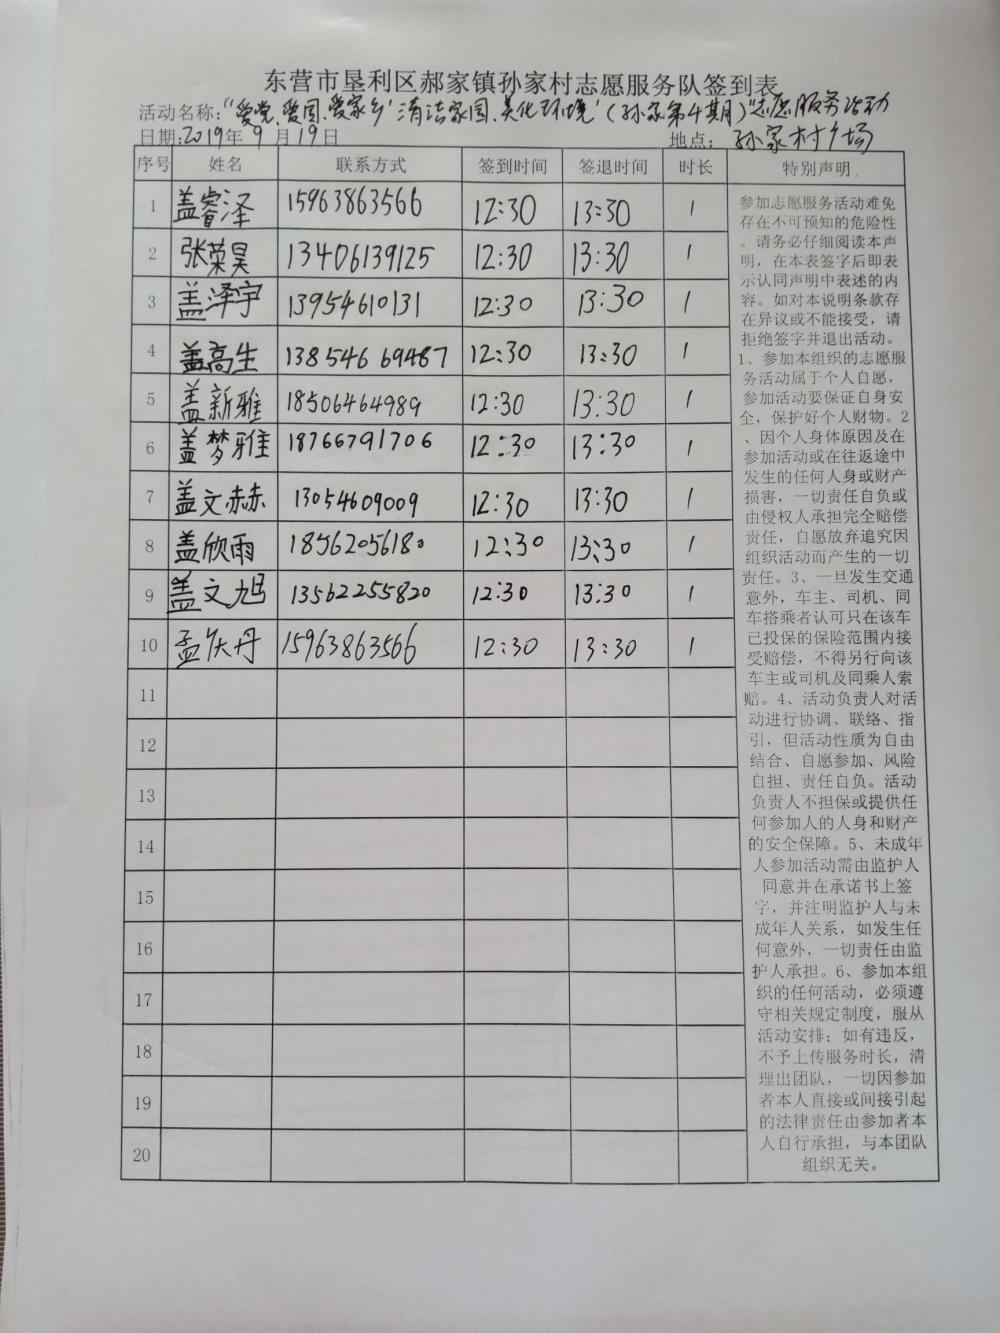 东营市垦利区郝家镇孙家村志愿服务队签到表
活动名称:“爱党、爱国、爱家乡‘清洁家园、美化环境’(孙家第4期)”志愿服务活动
日期:2019年9月19日 地点: 孙家村广场
序号 姓名 联系方式 签到时间 签退时间 时长 特别声明
1 盖睿泽 15963863566 12:30 13:30 1
2 张荣昊 13406139125 12:30 13:30 1
3 盖泽宇 13954610131 12:30 13:30 1
4 盖高生 13854669487 12:30 13:30 1
5 盖新雅 18506464989 12:30 13:30 1
6 盖梦雅 18766791706 12:30 13:30 1
7 盖文赫 13054609009 12:30 13:30 1
8 盖欣雨 18562056180 12:30 13:30 1
9 盖文旭 13562255820 12:30 13:30 1
10 孟庆丹 15963863566 12:30 13:30 1
11
12
13
14
15
16
17
18
19
20
参加志愿服务活动难免
存在不可预知的危险性
。请务必仔细阅读本声
明，在本表签字后即表
示认同声明中表述的内
容。如对本说明条款存
在异议或不能接受，请
拒绝签字并退出活动。
1、参加本组织的志愿服
务活动属于个人自愿，
参加活动要保证自身安
全，保护好个人财物。2
、因个人身体原因及在
参加活动或在往返途中
发生的任何人身或财产
损害，一切责任自负或
由侵权人承担完全赔偿
责任，自愿放弃追究因
组织活动而产生的一切
责任。3、一旦发生交通
意外，车主、司机、同
车搭乘者认可只在该车
已投保的保险范围内接
受赔偿，不得另行向该
车主或司机及同乘人索
赔。4、活动负责人对活
动进行协调、联络、指
引，但活动性质为自由
结合、自愿参加、风险
自担、责任自负。活动
负责人不担保或提供任
何参加人的人身和财产
的安全保障。5、未成年
人参加活动需由监护人
同意并在承诺书上签
字，并注明监护人与未
成年人关系，如发生任
何意外，一切责任由监
护人承担。6、参加本组
织的任何活动，必须遵
守相关规定制度，服从
活动安排；如有违反，
不予上传服务时长，清
理出团队，一切因参加
者本人直接或间接引起
的法律责任由参加者本
人自行承担，与本团队
组织无关。